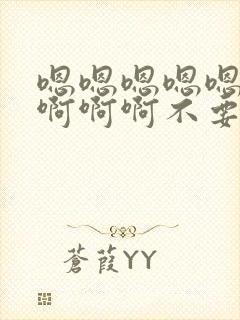 嗯嗯嗯嗯嗯
啊啊啊不要
蒼葭YY